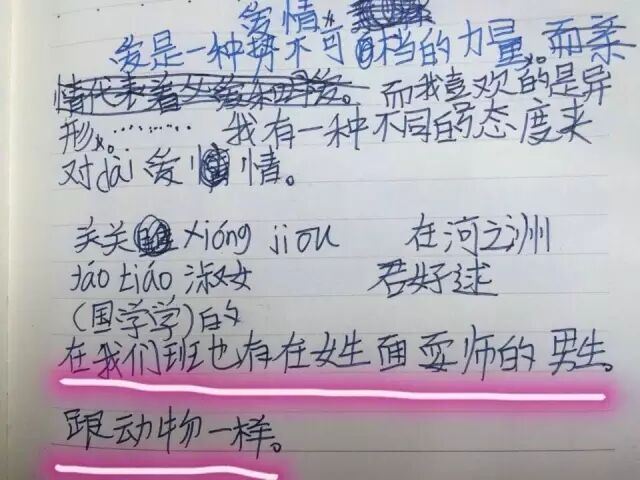 爱情。
爱是一种势不可档的力量。而亲
情代表着父爱和母爱。而我喜欢的是异
形。………我有一种不同的态度来
对dài爱情。
关关 xióng jiou 在河之洲
táo tiáo 淑女 君好逑
(国学学)的
在我们班也存在女生面耍师的男生。
跟动物一样。